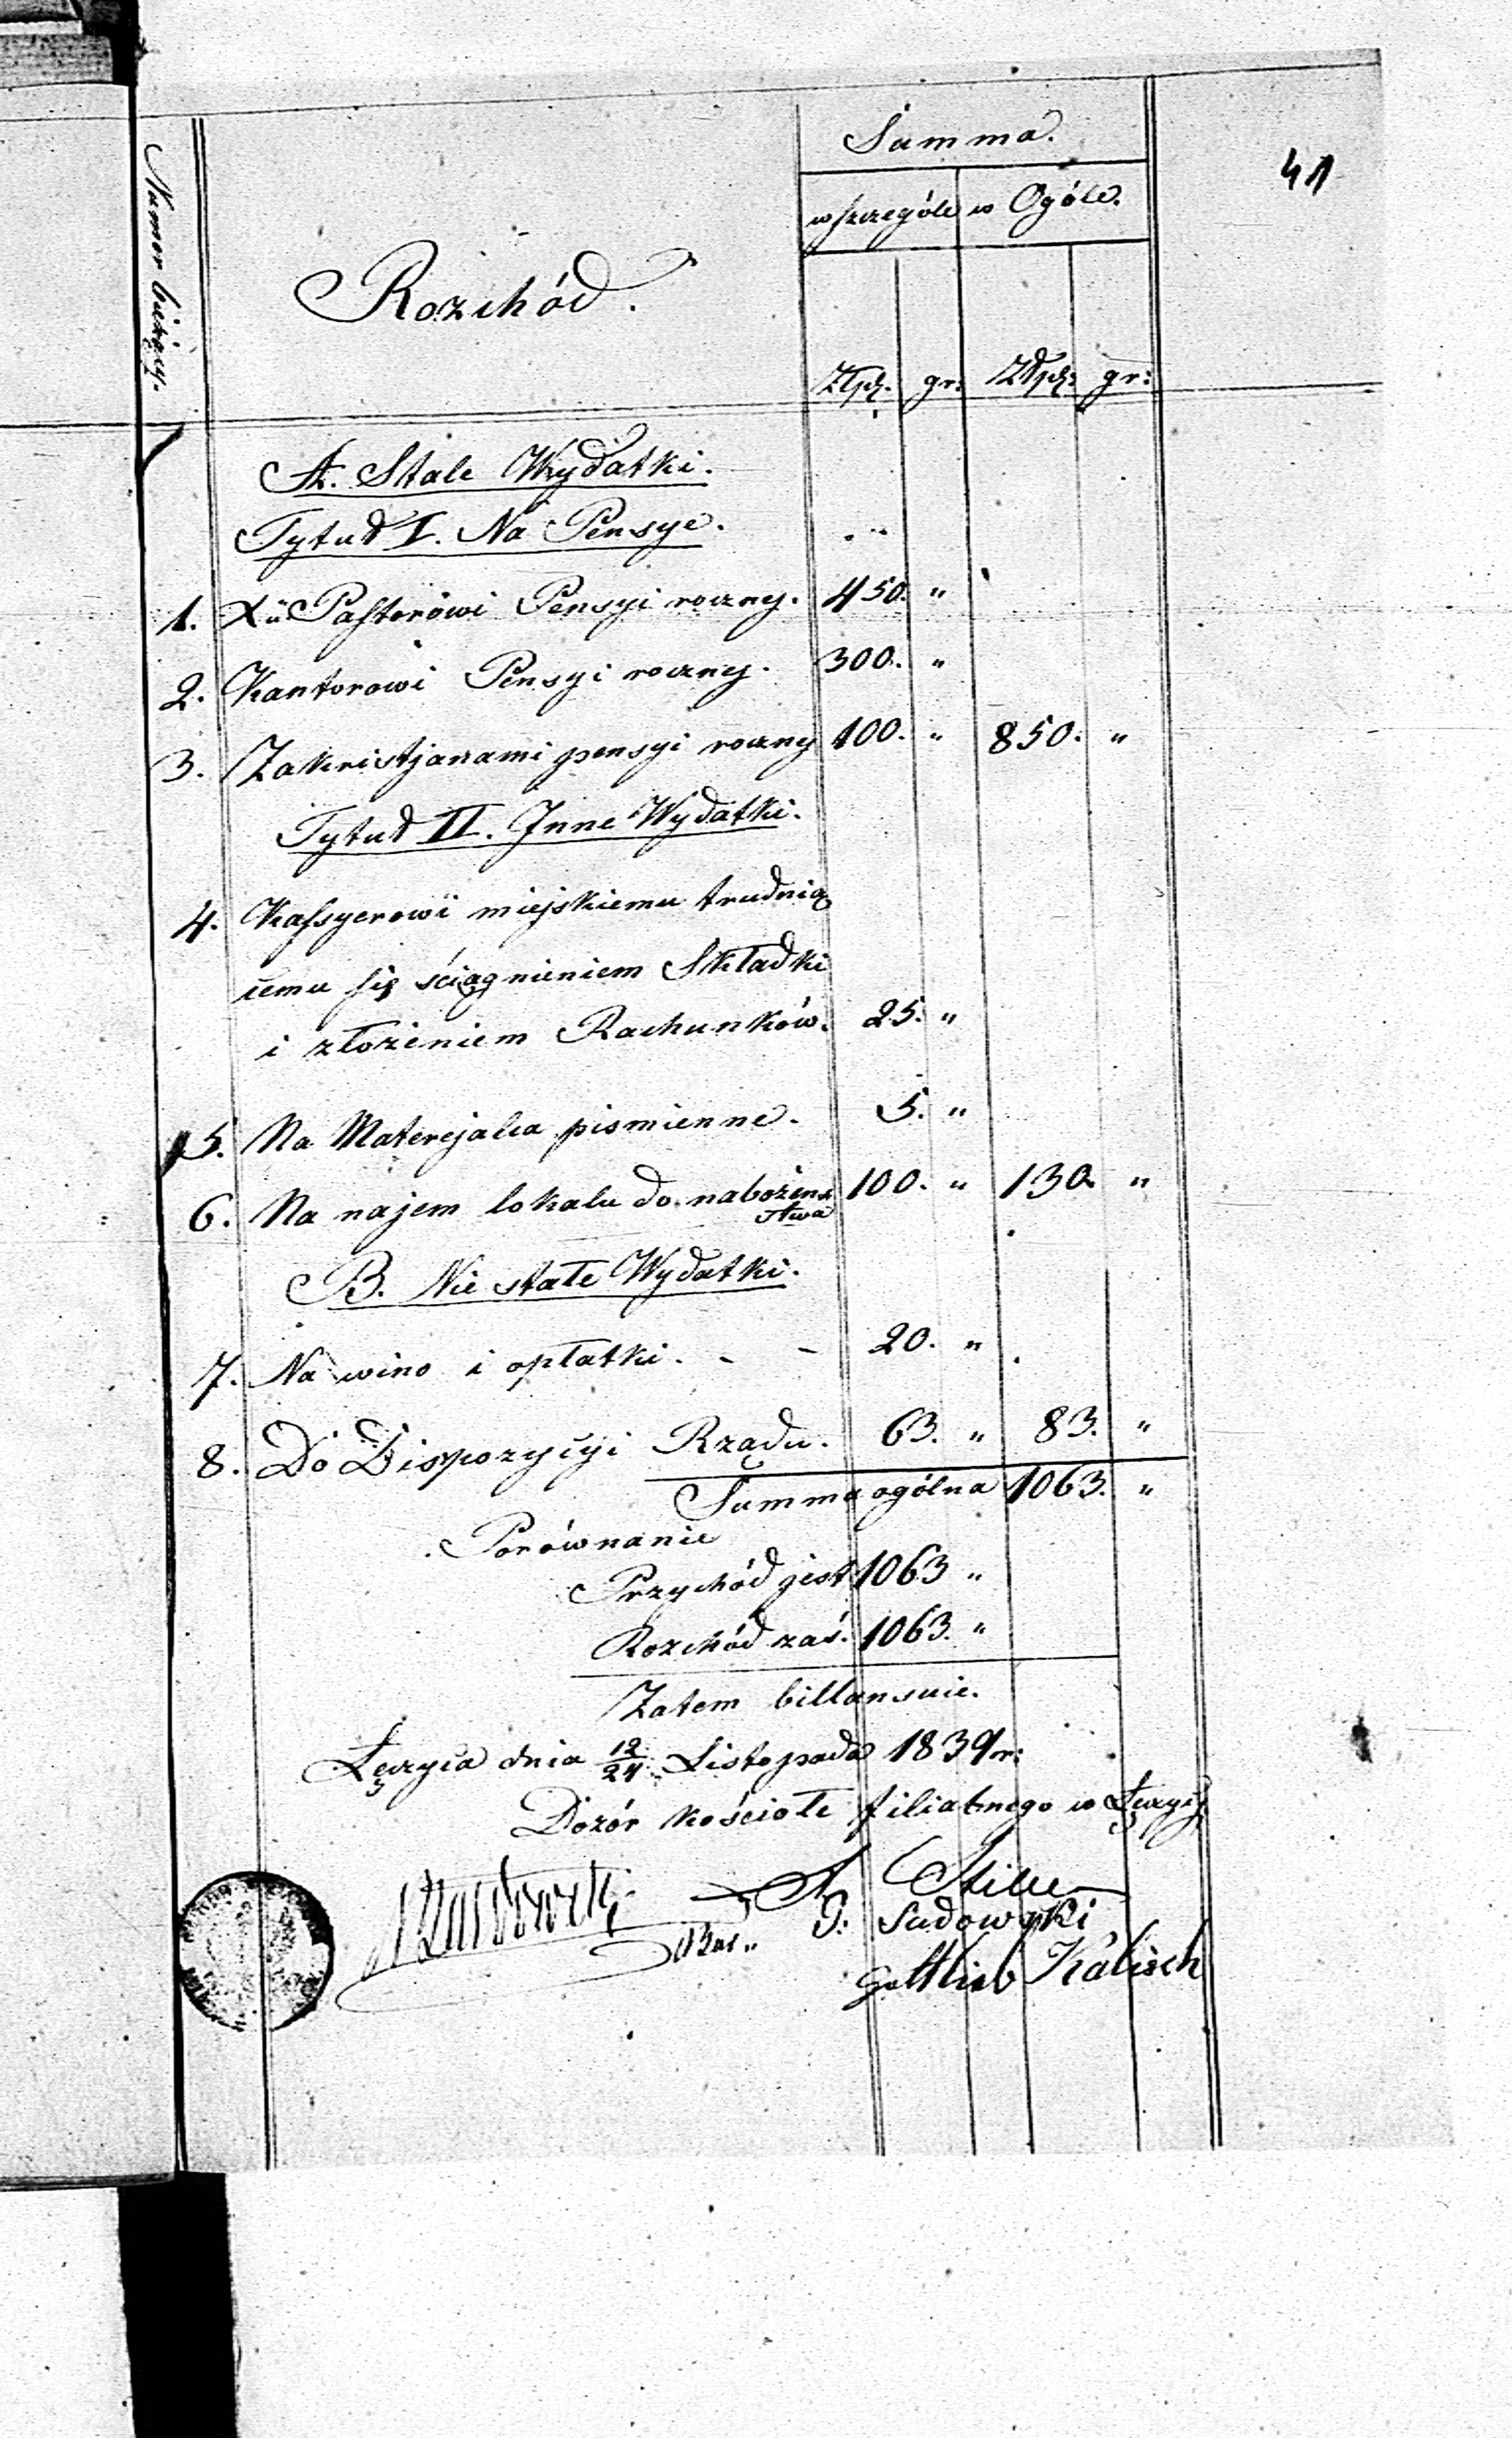 41
Summa.
w szczególe w Ogóle.
Numer bieżący.
Rozchód.
Złpl. gr: Złpl: gr:
A. Stałe Wydatki.
Tytuł I. Na Pensye.
1. Pastorowi Pensyi roczney. 450. "
2. Kantorowi Pensyi roczney. 300. "
3. Zakristjanami pensyi roczney 100. " 850. "
Tytuł II. Inne Wydatki.
4. Kassyerowi miejskiemu trudnią
cemu się ściągnieniem Składki
i złożeniem Rachunków. 25. "
5. Na Materejalia pismienne. 5. "
6. Na najem lokalu do nabożeń
stwa 100. " 130. "
B. Nie stałe Wydatki.
7. Na wino i opłatki. - - 20. "
8. Do Dispozycyi Rządu. 63. " 83. "
Summa ogólna 1063. "
Porównanie
Przychód jest 1063 "
Rozchód zaś. 1063. "
Zatem billansuie.
Łęczyca dnia 12/24 Listopada 1839 r:
Dozór kościoła filialnego w Łęczycy
Stiller
G: Sadowski
Gottlieb Kalisch